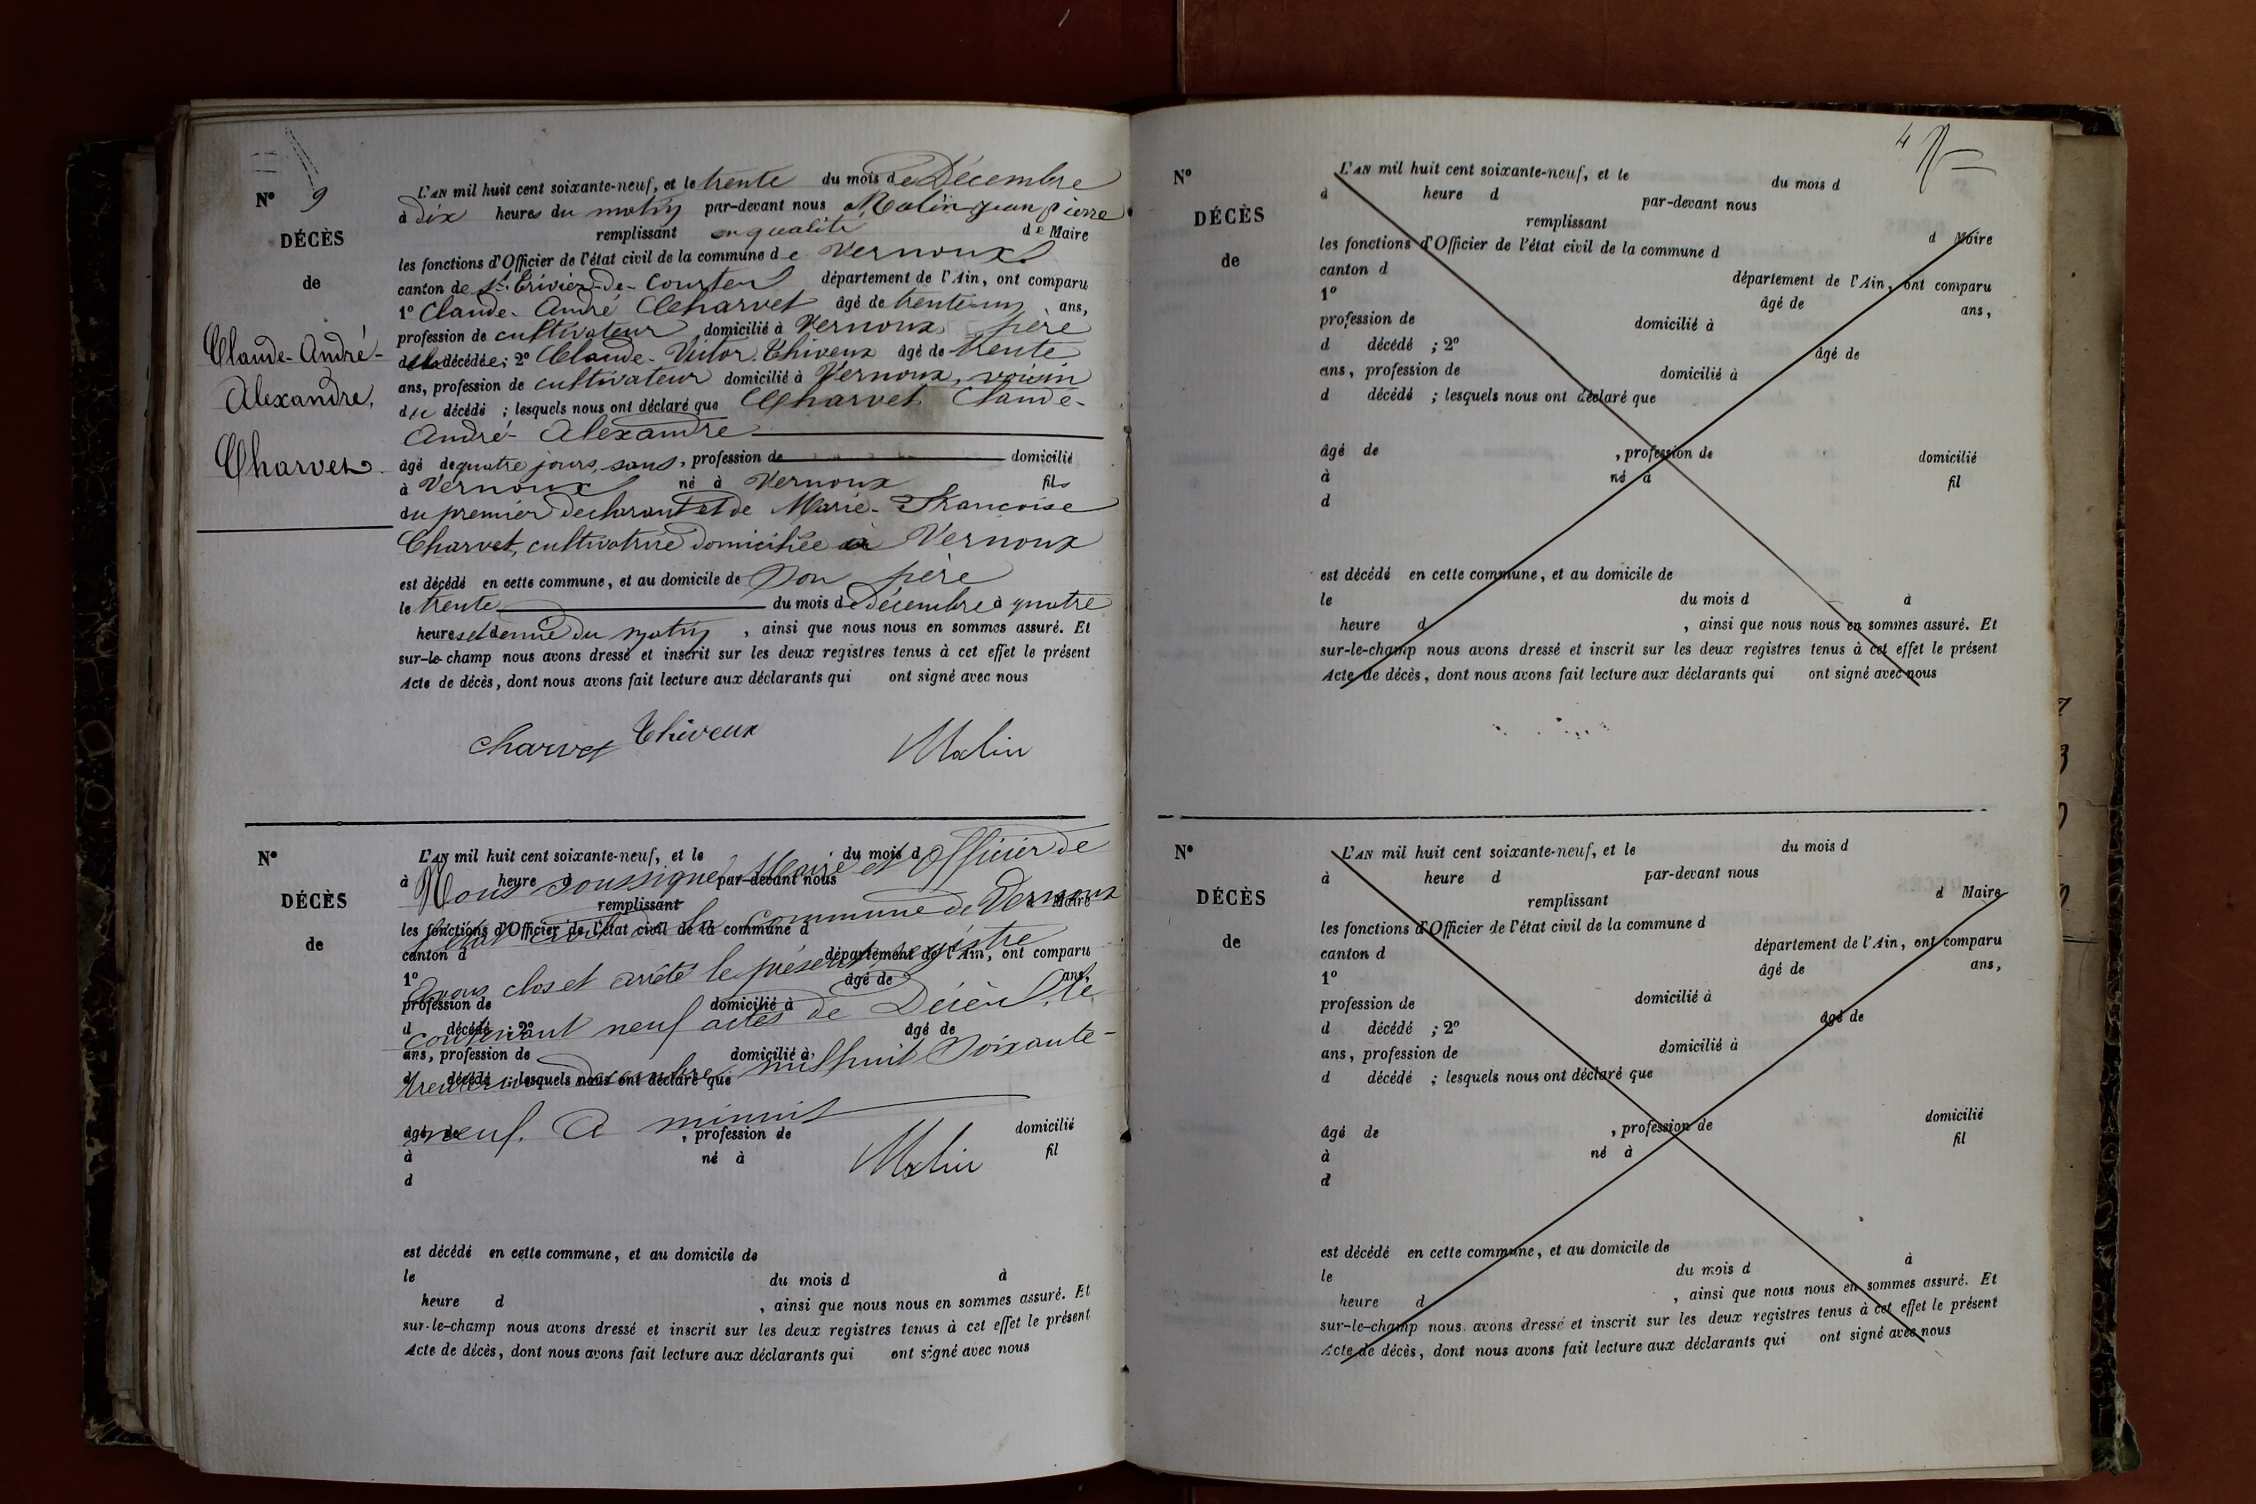 N° 9
DÉCÈS
de
Claude-André-
Alexandre,
Charvet
L'AN mil huit cent soixante-neuf, et le trente du mois de Décembre
à dix heures du matin par-devant nous Malin Jean pierre
remplissant en qualité de Maire
les fonctions d'Officier de l'état civil de la commune de Vernoux
canton de St. Trivier-de-Courtes département de l'Ain, ont comparu
1° Claude-André Charvet âgé de trente-un ans,
profession de cultivateur domicilié à Vernoux père
décédée; 2° Claude-Victor Thiveux âgé de trente
ans, profession de cultivateur domicilié à Vernoux, voisin
du décédé ; lesquels nous ont déclaré que Charvet Claude-
André-Alexandre
âgé de quatre jours, sans, profession de domicilié
à Vernoux né à Vernoux fils
du premier declarant et de Marie-Francoise
Charvet, cultivatrice domiciliée à Vernoux
est décédé en cette commune, et au domicile de son père
le trente du mois de décembre à quatre
heures et demie du matin, ainsi que nous nous en sommes assuré. Et
sur-le-champ nous avons dressé et inscrit sur les deux registres tenus à cet effet le présent
Acte de décès, dont nous avons fait lecture aux déclarants qui ont signé avec nous
Charvet Thiveux Malin
N°
DÉCÈS
de
L'AN mil huit cent soixante-neuf, et le du mois d
à heure d par-devant nous
Nous soussigné Maire et Officier de
remplissant d Maire
l'état civil de la commune de Vernoux
les fonctions d'Officier de l'état civil de la commune d
canton d département de l'Ain, ont comparu
avons clos et arrêté le présent registre
1° âgé de ans,
profession de domicilié à
contenant neuf actes de Décès, le
d décédé ; 2° âgé de
ans, profession de domicilié à
trente un Décembre mil huit soixante-
d décédé ; lesquels nous ont déclaré que
neuf. A minuit
âgé de , profession de domicilié
à né à fil
d
Malin
est décédé en cette commune, et au domicile de
le du mois d à
heure d , ainsi que nous nous en sommes assuré. Et
sur-le-champ nous avons dressé et inscrit sur les deux registres tenus à cet effet le présent
Acte de décès, dont nous avons fait lecture aux déclarants qui ont signé avec nous
4
N°
DÉCÈS
de
L'AN mil huit cent soixante-neuf, et le du mois d
à heure d par-devant nous
remplissant d Maire
les fonctions d'Officier de l'état civil de la commune d
canton d département de l'Ain, ont comparu
1° âgé de ans,
profession de domicilié à
d décédé ; 2° âgé de
ans, profession de domicilié à
d décédé ; lesquels nous ont déclaré que
âgé de , profession de domicilié
à né à fil
d
est décédé en cette commune, et au domicile de
le du mois d à
heure d , ainsi que nous nous en sommes assuré. Et
sur-le-champ nous avons dressé et inscrit sur les deux registres tenus à cet effet le présent
Acte de décès, dont nous avons fait lecture aux déclarants qui ont signé avec nous
N°
DÉCÈS
de
L'AN mil huit cent soixante-neuf, et le du mois d
à heure d par-devant nous
remplissant d Maire
les fonctions d'Officier de l'état civil de la commune d
canton d département de l'Ain, ont comparu
1° âgé de ans,
profession de domicilié à
d décédé ; 2° âgé de
ans, profession de domicilié à
d décédé ; lesquels nous ont déclaré que
âgé de , profession de domicilié
à né à fil
d
est décédé en cette commune, et au domicile de
le du mois d à
heure d , ainsi que nous nous en sommes assuré. Et
sur-le-champ nous avons dressé et inscrit sur les deux registres tenus à cet effet le présent
Acte de décès, dont nous avons fait lecture aux déclarants qui ont signé avec nous